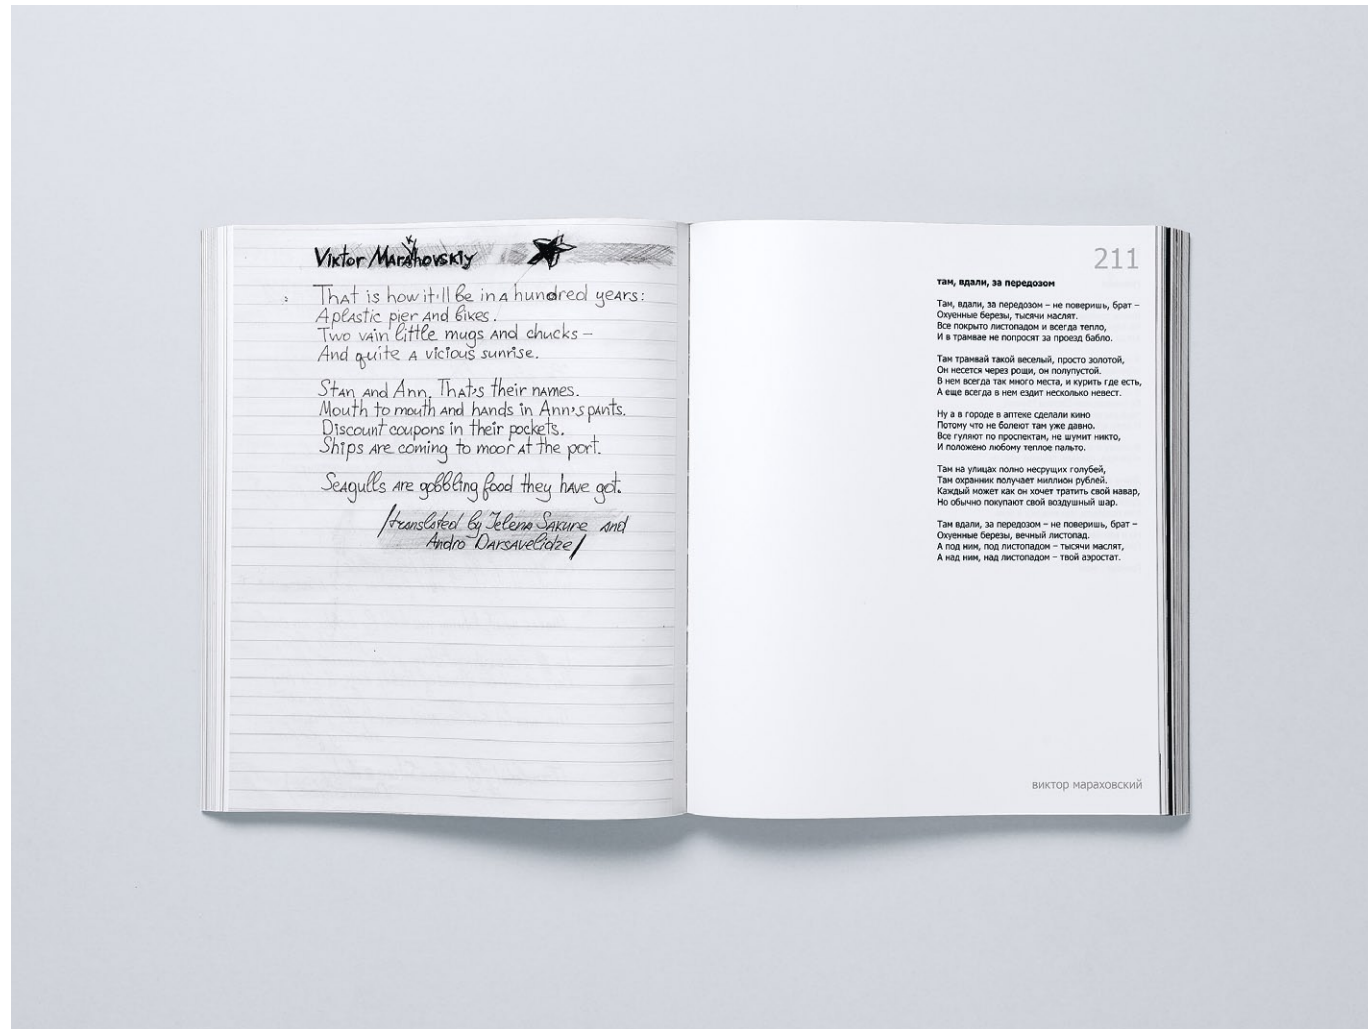 Viktor Marakhovskiy
That is how it'll be in a hundred years:
A plastic pier and bikes.
Two vain little mugs and chucks –
And quite a vicious sunrise.
Stan and Ann. That's their names.
Mouth to mouth and hands in Ann's pants.
Discount coupons in their pockets.
Ships are coming to moor at the port.
Seagulls are gobbling food they have got.
/translated by Jelena Sakure and
Andro Darsavelidze/
211
там, вдали, за передозом
Там, вдали, за передозом – не поверишь, брат –
Охуенные березы, тысячи маслят.
Все покрыто листопадом и всегда тепло,
И в трамвае не попросят за проезд бабло.
Там трамвай такой веселый, просто золотой,
Он несется через рощи, он полупустой.
В нем всегда так много места, и курить где есть,
А еще всегда в нем ездит несколько невест.
Ну а в городе в аптеке сделали кино
Потому что не болеют там уже давно.
Все гуляют по проспектам, не шумит никто,
И положено любому теплое пальто.
Там на улицах полно несрущих голубей,
Там охранник получает миллион рублей.
Каждый может как он хочет тратить свой навар,
Но обычно покупают свой воздушный шар.
Там вдали, за передозом – не поверишь, брат –
Охуенные березы, вечный листопад.
А под ним, под листопадом – тысячи маслят,
А над ним, над листопадом – твой аэростат.
виктор мараховский